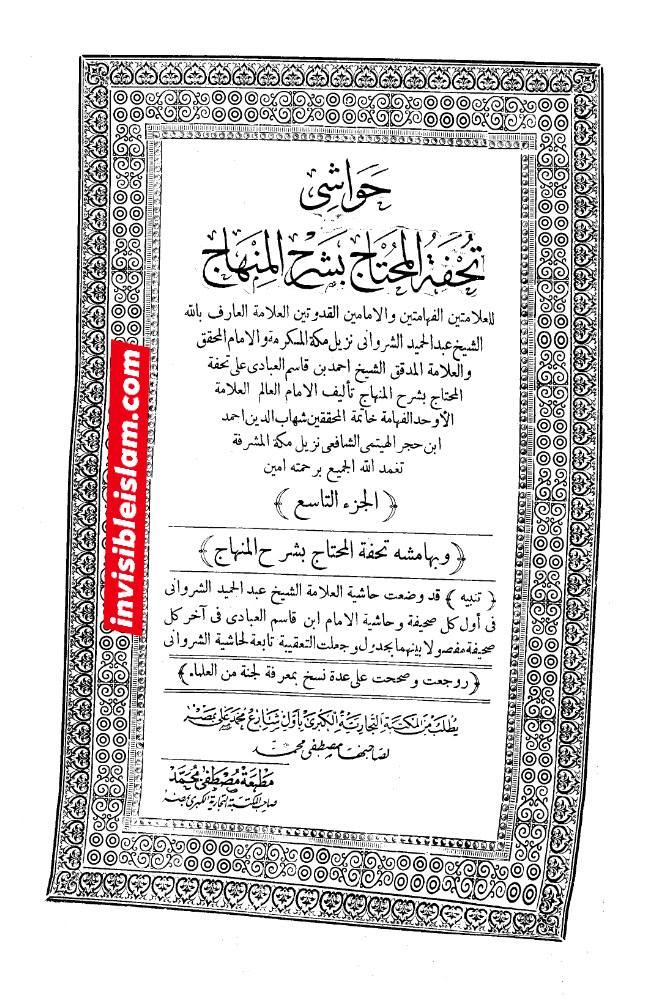 حَوَاشِى
تُحْفَةُ المُحْتَاجِ بِشَرْحِ المِنْهَاجِ
للعلامتين الفهامتين والامامين القدوتين العلامة العارف بالله
الشيخ عبد الحميد الشروانى نزيل مكة المكرمة والامام المحقق
والعلامة المدقق الشيخ احمد بن قاسم العبادى على تحفة
المحتاج بشرح المنهاج تأليف الامام العالم العلامة
الأوحد الفهامة خاتمة المحققين شهاب الدين احمد
ابن حجر الهيتمى الشافعى نزيل مكة المشرفة
تغمد الله الجميع برحمته امين
﴿ الجزء التاسع ﴾
﴿ وبهامشه تحفة المحتاج بشرح المنهاج ﴾
﴿ تنبيه ﴾ قد وضعت حاشية العلامة الشيخ عبد الحميد الشروانى
فى أول كل صحيفة وحاشية الامام ابن قاسم العبادى فى آخر كل
صحيفة مفصولا بينهما بجدول وجعلت التعقيبة تابعة لحاشية الشروانى
﴿ روجعت وصححت على عدة نسخ بمعرفة لجنة من العلماء ﴾
يطلب من المكتبة التجارية الكبرى بأول شارع محمد على بمصر
لصاحبها مصطفى محمد
مطبعة مصطفى محمد
صاحب المكتبة التجارية الكبرى بمصر
invisibleislam.com